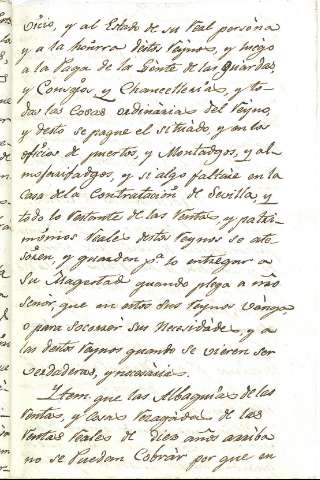 vicio, y al Estado de su Real persona
y a la honrra destos Reynos, y luego
a la Paga de la Gente de las guardas,
y Consejos y Chancellerias, y to-
das las Cosas ordinarias del Reyno,
y desto se pague el situado, y en los
oficios de puertos, y Montadgos, y al-
mojarifadgos, y si algo faltare en la
Casa de la Contratacion de Sevilla, y
todo lo Restante de las Rentas, y patri-
monios Reales destos Reynos se ate-
soren, y guarden pª. lo entregar a
Su Magestad quando plega a nro
señor, que en estos sus Reynos venga
o para socorrer sus Necesidades, y a
las destos Reynos quando se vieren ser
verdaderas, y necesarias.
Item que las Albaquias de las
Rentas, y Cosas Rezagadas de las
Rentas Reales de diez años arriba
no se Puedan Cobrar por que en